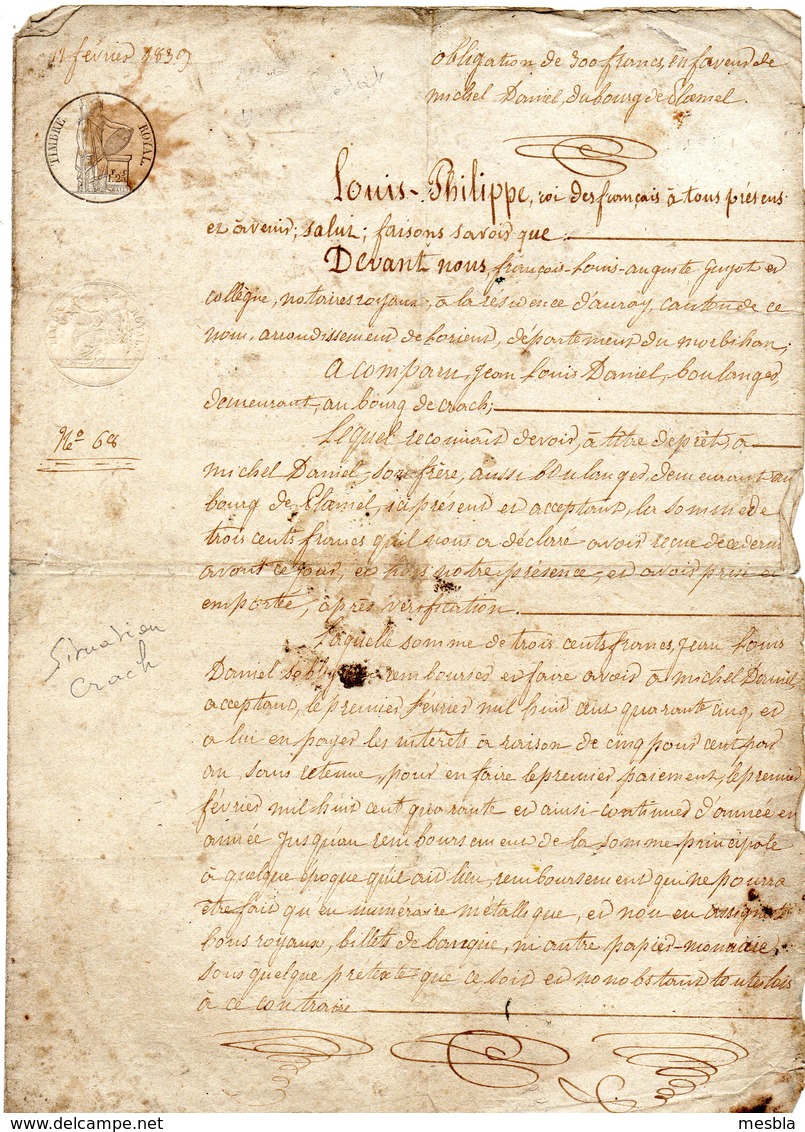 11 février 1839
obligation de 300 francs, en faveur de
michel Daniel, du bourg de Plœmel.
TIMBRE ROYAL
Louis-Philippe, roi des français à tous présens
et avenir; salut; faisons savoir que:
Devant nous, françois-Louis-auguste Guyot et
collègue, notaires royaux, à la résidence d'auray, canton de ce
nom, arrondissement de Lorient, département du morbihan;
A comparu, Jean Louis Daniel, boulanger,
demeurant, au bourg de crach;
No 68
Lequel reconnait devoir, à titre de prêt, à
michel Daniel, son frère, aussi boulanger, demeurant au
bourg de Plœmel, ici présent et acceptant, la somme de
trois cents francs qu'il nous a déclaré avoir reçue de ce dernier
avant ce jour, et hors notre présence, et avoir prise et
emportée, après vérification.
Situation
Crach
Laquelle somme de trois cents francs, Jean Louis
Daniel s'oblige rembourser et faire avoir à michel Daniel
acceptant, le premier février mil huit cent quarante cinq, et
à lui en payer les intérêts à raison de cinq pour cent par
an sans retenue, pour en faire le premier paiement, le premier
février mil huit cent quarante et ainsi continuer d'année en
année jusqu'au remboursement de la somme principale
à quelque époque qu'il ait lieu, remboursement qui ne pourra
être fait qu'en numéraire métallique, et non en assignats
bons royaux, billets de banque, ni autre papier-monnaie,
sous quelque pretexte que ce soit et nonobstant toutes lois
à ce contraire
mesbla